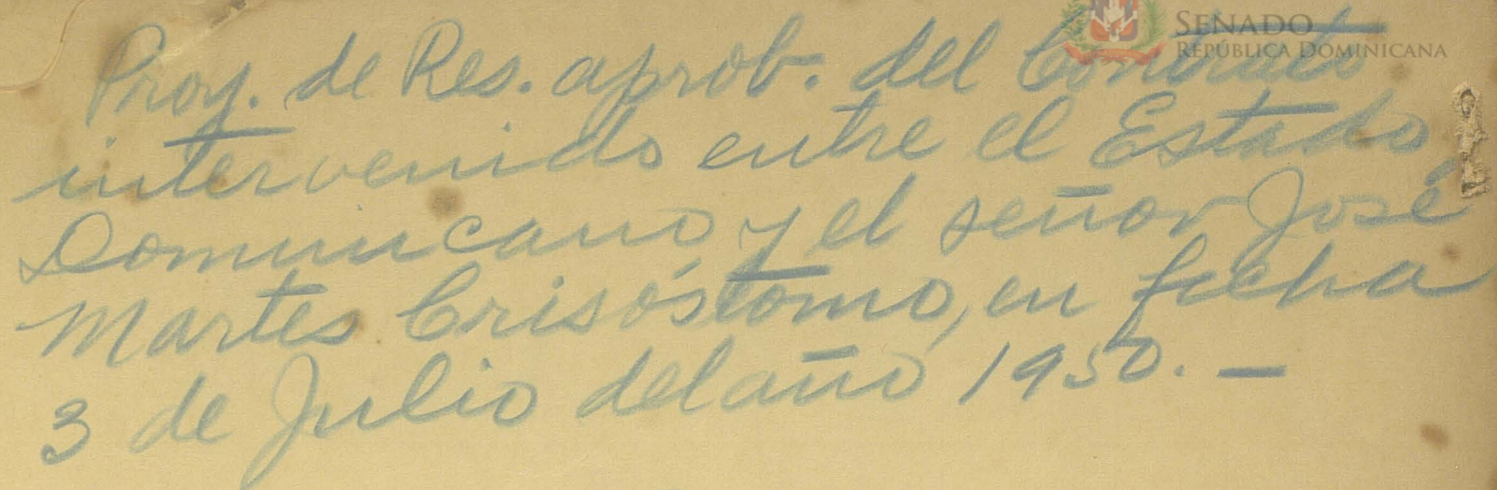 SENADO
REPÚBLICA DOMINICANA
Proy. de Res. aprob. del Contrato
intervenido entre el Estado
Dominicano y el señor José
Martes Crisóstomo, en fecha
3 de Julio del año 1950.—